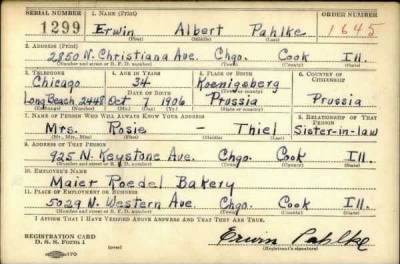 SERIAL NUMBER 1. NAME (Print) ORDER NUMBER
1299 Erwin Albert Pahlke 1645
(First) (Middle) (Last)
2. ADDRESS (Print)
2850 N. Christiana Ave. Chgo. Cook Ill.
(Number and street or R. F. D. number) (Town) (County) (State)
3. TELEPHONE 4. AGE IN YEARS 5. PLACE OF BIRTH 6. COUNTRY OF CITIZENSHIP
Chicago 34 Koenigsberg
DATE OF BIRTH (Town or county)
Long Beach 2448 Oct 7 1906 Prussia Prussia
(Exchange) (Number) (Mo.) (Day) (Yr.) (State or country)
7. NAME OF PERSON WHO WILL ALWAYS KNOW YOUR ADDRESS 8. RELATIONSHIP OF THAT PERSON
Mrs. Rosie – Thiel Sister-in-law
(Mr., Mrs., Miss) (First) (Middle) (Last)
9. ADDRESS OF THAT PERSON
925 N. Keystone Ave. Chgo. Cook Ill.
(Number and street or R. F. D. number) (Town) (County) (State)
10. EMPLOYER'S NAME
Maier Roedel Bakery
11. PLACE OF EMPLOYMENT OR BUSINESS
5029 N. Western Ave. Chgo. Cook Ill.
(Number and street or R. F. D. number) (Town) (County) (State)
I AFFIRM THAT I HAVE VERIFIED ABOVE ANSWERS AND THAT THEY ARE TRUE.
REGISTRATION CARD
D. S. S. Form 1 (over) Erwin Pahlke
(Registrant's signature)